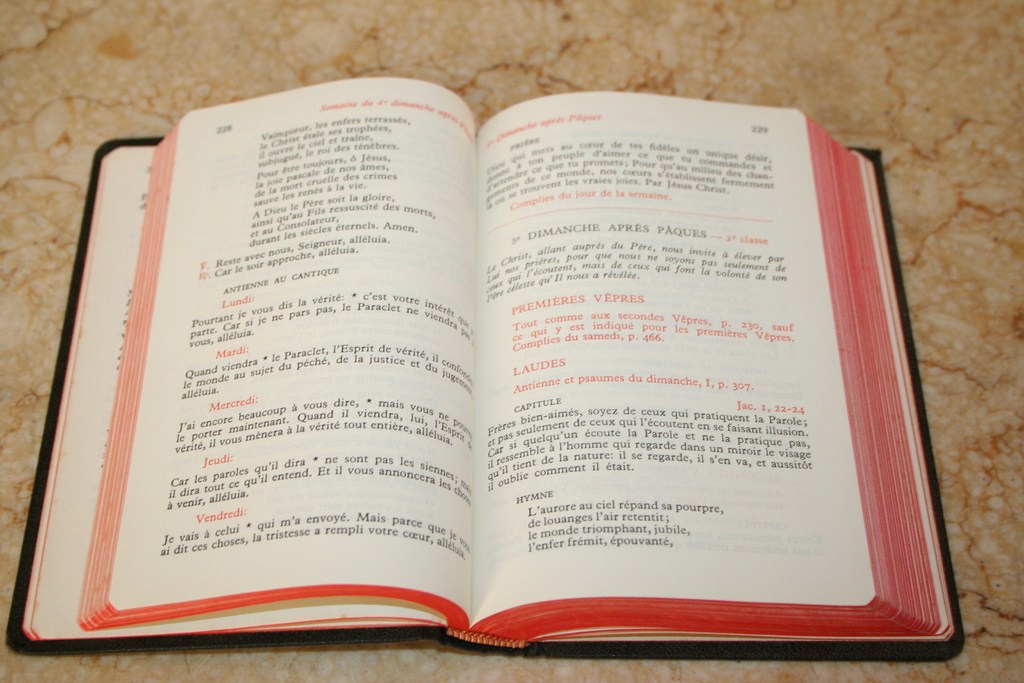 228
Semaine du 4e dimanche après
Vainqueur, les enfers terrassés,
le Christ étale ses trophées,
il ouvre le ciel et traîne,
subjugué, le roi des ténèbres.
Pour être toujours, ô Jésus,
la joie pascale de nos âmes,
de la mort cruelle des crimes
sauve les renés à la vie.
A Dieu le Père soit la gloire,
ainsi qu'au Fils ressuscité des morts,
et au Consolateur,
durant les siècles éternels. Amen.
℣. Reste avec nous, Seigneur, alléluia.
℟. Car le soir approche, alléluia.
ANTIENNE AU CANTIQUE
Lundi:
Pourtant je vous dis la vérité: * c'est votre intérêt que
parte. Car si je ne pars pas, le Paraclet ne viendra pas
vous, alléluia.
Mardi:
Quand viendra * le Paraclet, l'Esprit de vérité, il confondra
le monde au sujet du péché, de la justice et du jugement
alléluia.
Mercredi:
J'ai encore beaucoup à vous dire, * mais vous ne pouvez
le porter maintenant. Quand il viendra, lui, l'Esprit
vérité, il vous mènera à la vérité tout entière, alléluia.
Jeudi:
Car les paroles qu'il dira * ne sont pas les siennes; mais
il dira tout ce qu'il entend. Et il vous annoncera les choses
à venir, alléluia.
Vendredi:
Je vais à celui * qui m'a envoyé. Mais parce que je vous
ai dit ces choses, la tristesse a rempli votre cœur, alléluia.
Dimanche après Pâques
229
PRIÈRE
Dieu qui mets au cœur de tes fidèles un unique désir,
donne à ton peuple d'aimer ce que tu commandes et
d'attendre ce que tu promets; Pour qu'au milieu des chan-
gements de ce monde, nos cœurs s'établissent fermement
là où se trouvent les vraies joies. Par Jésus Christ.
Complies du jour de la semaine.
5e DIMANCHE APRÈS PÂQUES — 2e classe
Le Christ, allant auprès du Père, nous invite à élever par
Lui nos prières, pour que nous ne soyons pas seulement de
ceux qui l'écoutent, mais de ceux qui font la volonté de son
Père céleste qu'Il nous a révélée.
PREMIÈRES VÊPRES
Tout comme aux secondes Vêpres, p. 230, sauf
ce qui y est indiqué pour les premières Vêpres.
Complies du samedi, p. 466.
LAUDES
Antienne et psaumes du dimanche, I, p. 307.
CAPITULE
Jac. 1, 22-24
Frères bien-aimés, soyez de ceux qui pratiquent la Parole;
et pas seulement de ceux qui l'écoutent en se faisant illusion.
Car si quelqu'un écoute la Parole et ne la pratique pas,
il ressemble à l'homme qui regarde dans un miroir le visage
qu'il tient de la nature: il se regarde, il s'en va, et aussitôt
il oublie comment il était.
HYMNE
L'aurore au ciel répand sa pourpre,
de louanges l'air retentit;
le monde triomphant, jubile,
l'enfer frémit, épouvanté,